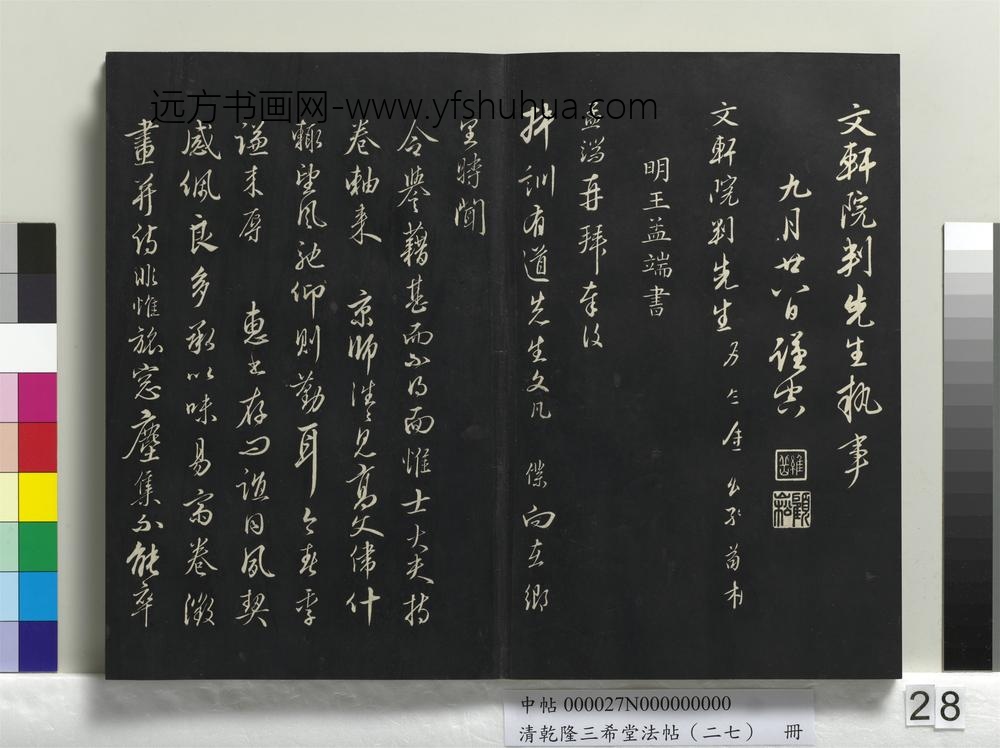 文軒院判先生執事
九月廿八日謹空
維嵓
文軒院判先生
明王孟端書
孟端再拜奉復
叔訓有道先生文几 僕向在鄉
里時聞
令譽藉甚而不得面惟士大夫持
卷軸來 京師淮見高文偉什
輒望風馳仰則勤耳今春季
謙來辱 惠書存問誼同夙契
感佩良多承以味易齋卷徵
畫并詩眎惟旅窓塵集不能卒
远方书画网-www.yfshuhua.com
中帖 000027N000000000
清乾隆三希堂法帖（二七） 冊
28